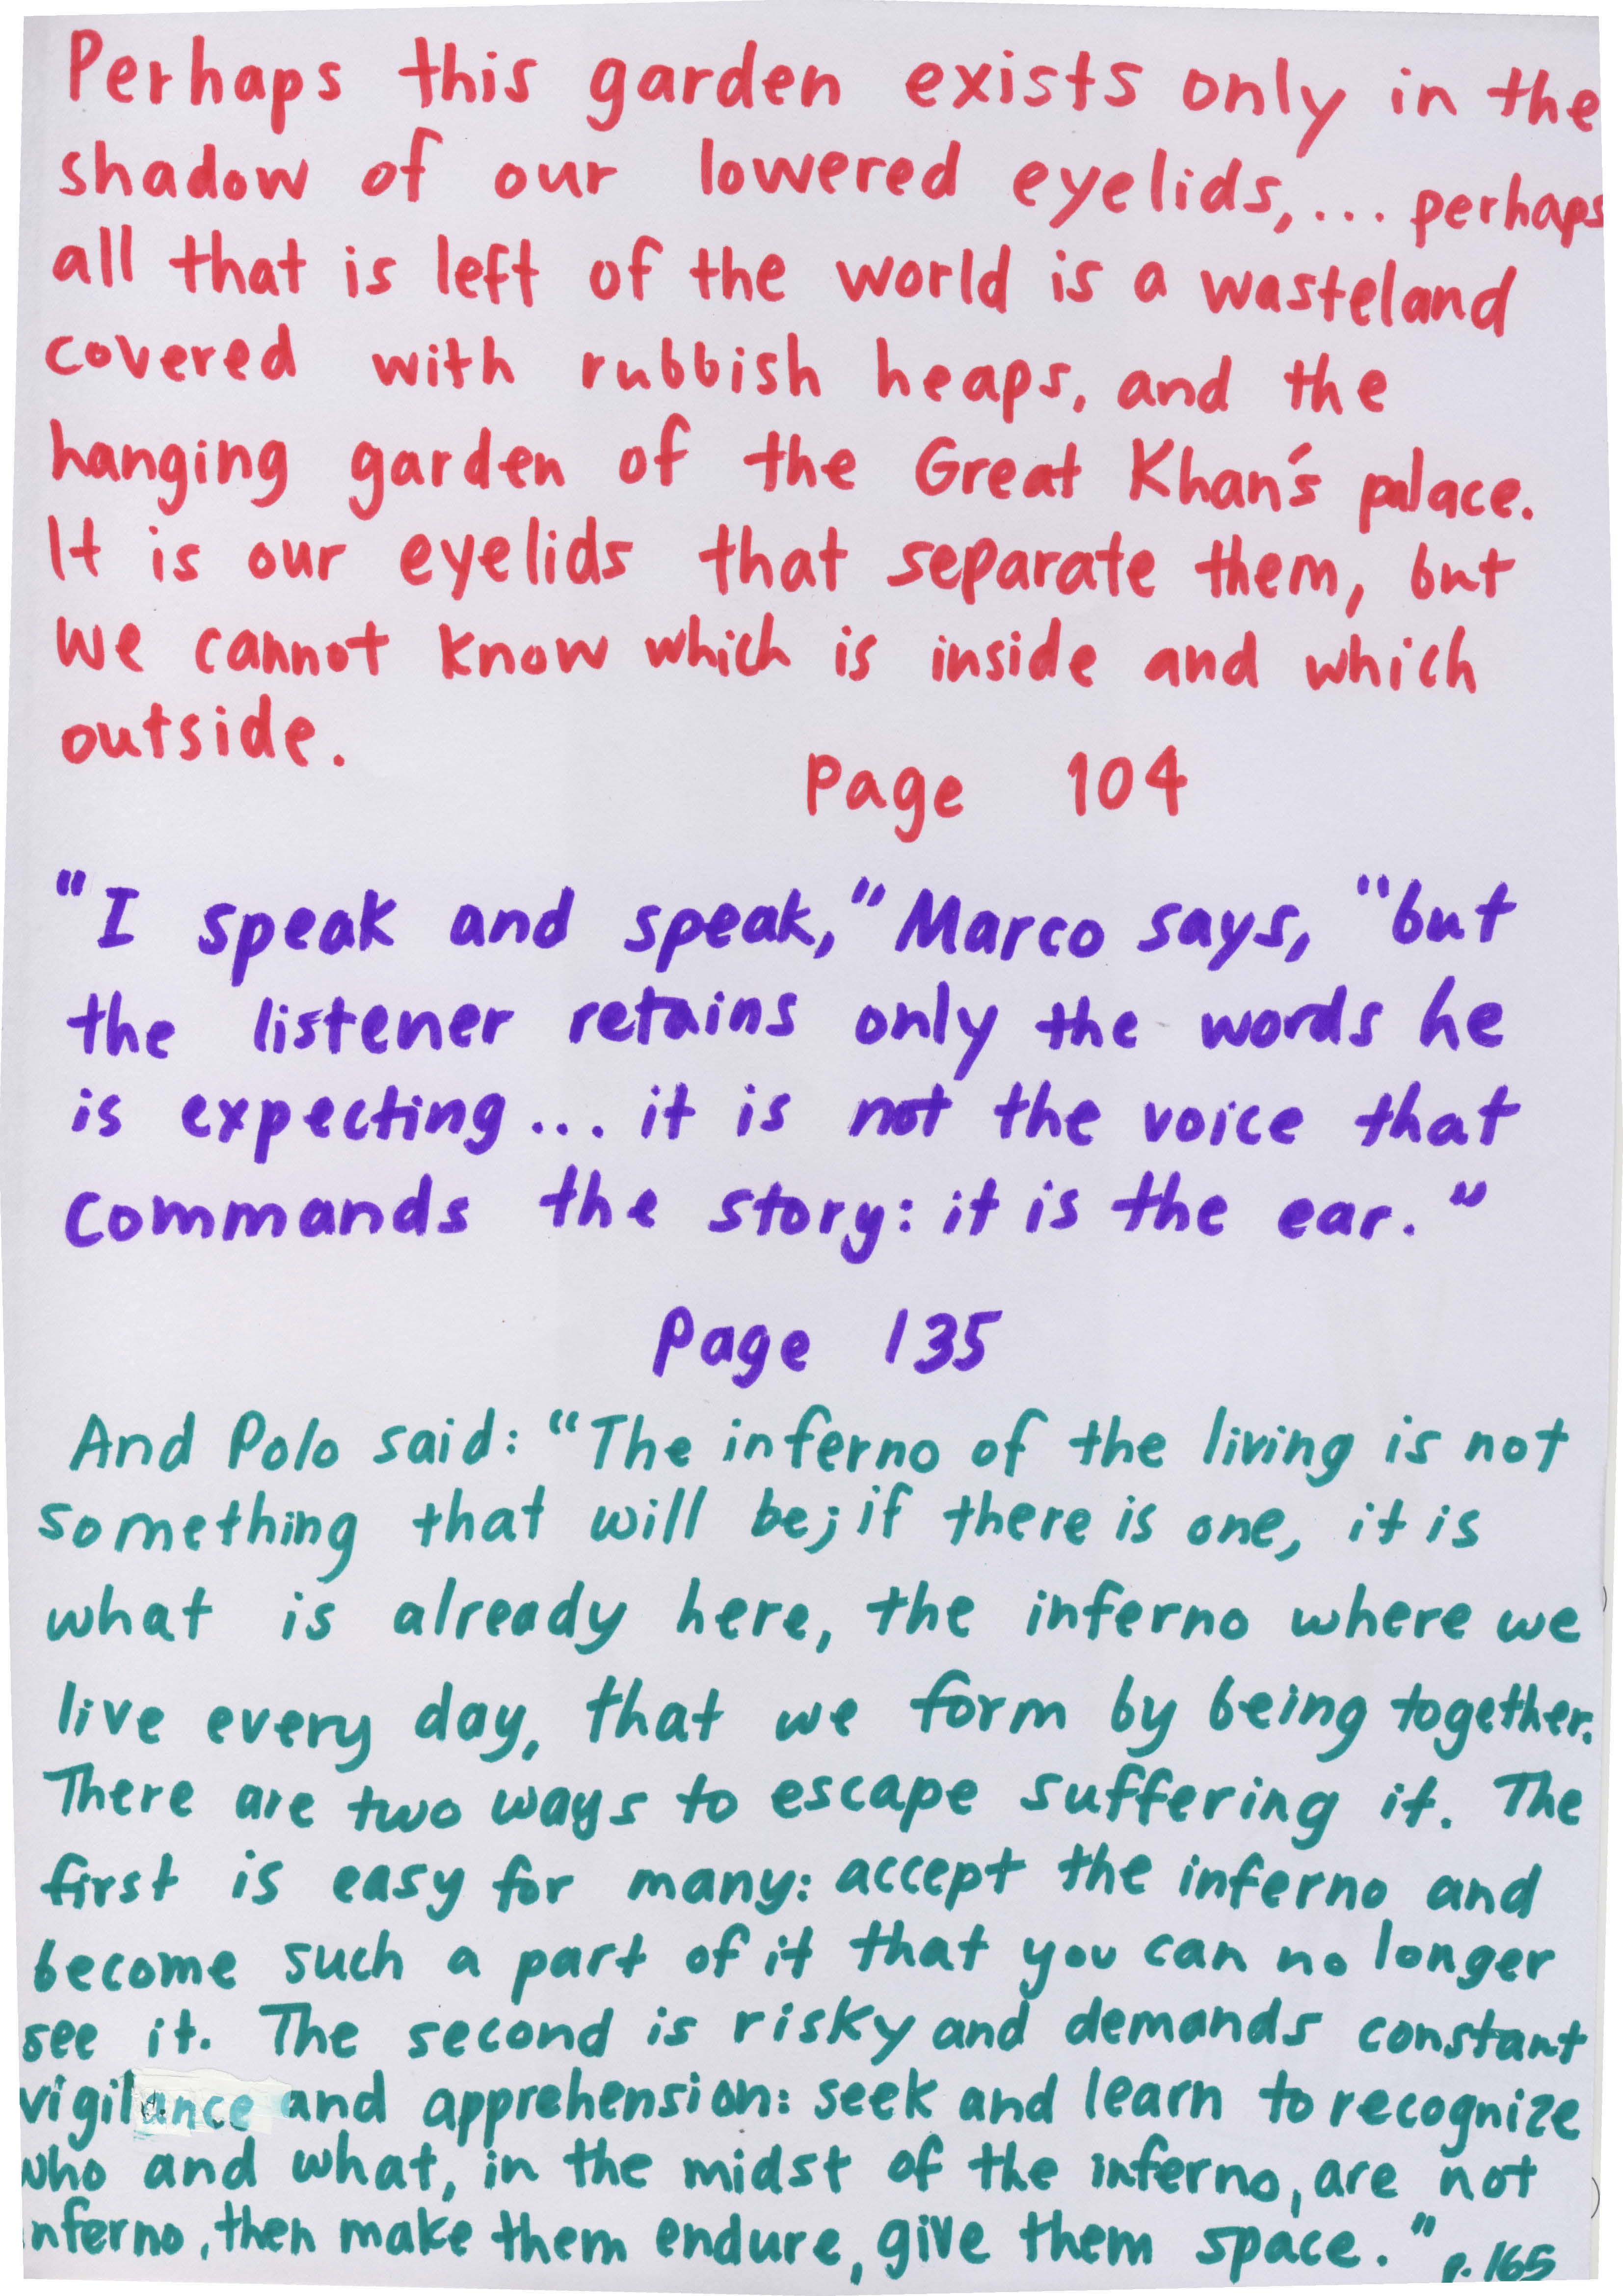 Perhaps this garden exists only in the
shadow of our lowered eyelids,... perhaps
all that is left of the world is a wasteland
covered with rubbish heaps, and the
hanging garden of the Great Khan's palace.
It is our eyelids that separate them, but
we cannot know which is inside and which
outside.
Page 104
"I speak and speak," Marco says, "but
the listener retains only the words he
is expecting... it is not the voice that
commands the story: it is the ear."
Page 135
And Polo said: "The inferno of the living is not
something that will be; if there is one, it is
what is already here, the inferno where we
live every day, that we form by being together.
There are two ways to escape suffering it. The
first is easy for many: accept the inferno and
become such a part of it that you can no longer
see it. The second is risky and demands constant
vigilance and apprehension: seek and learn to recognize
who and what, in the midst of the inferno, are not
inferno, then make them endure, give them space."
p. 165